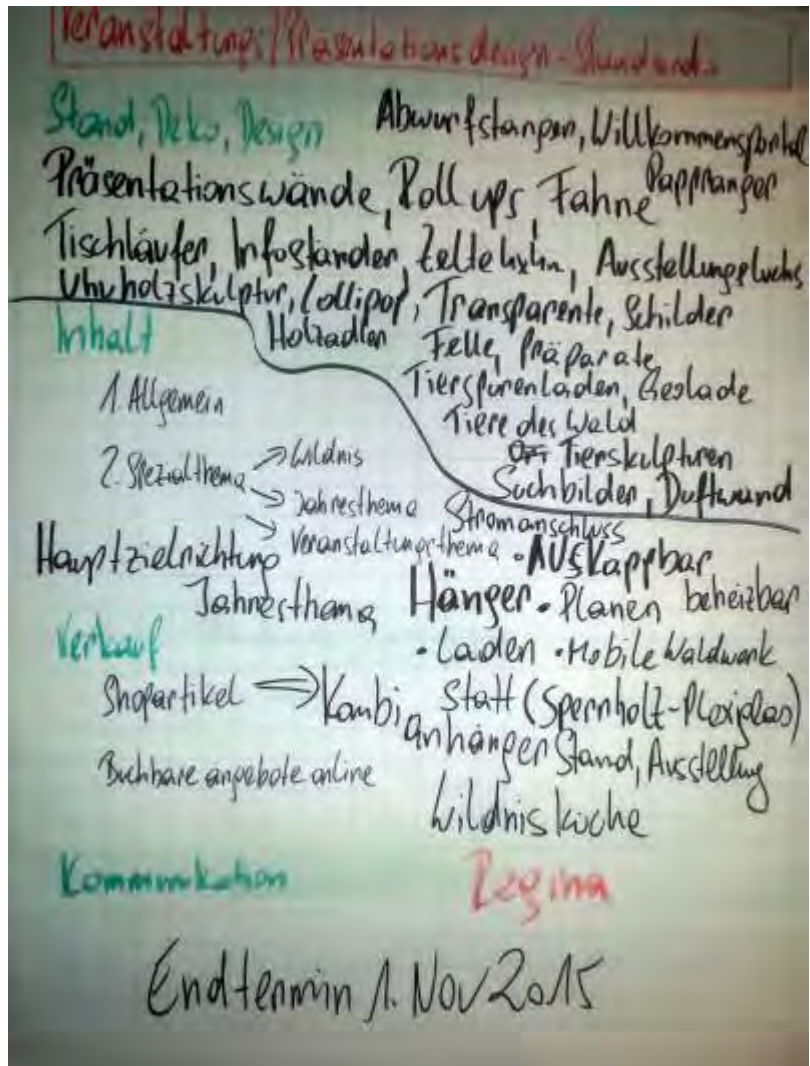 Veranstaltungs/Präsentationsdesign-Standards
Stand, Deko, Design
Abwurfstangen, Willkommensportal
Präsentationswände, Roll ups, Fahne
Papphänger
Tischläufer, Infoständer, Zelte
Ausstellungs
Uhuholzskulptur, Lollipop, Transparente, Schilder
Holzadler
Felle, Präparate
Tierspurenladen, Geolade
Tiere des Wald
Tierskulpturen
Suchbilder, Duftwand
Inhalt
1. Allgemein
2. Spezialthema
Wildnis
Jahresthema
Veranstaltungsthema
Hauptzielrichtung
Jahresthema
Stromanschluss
Hänger
• AUSKlappbar
• Planen beheizbar
• Laden • Mobile Waldwerk
statt (Sperrholz-Plexiglas)
Verkauf
Shopartikel
Kombi
anhänger Stand, Ausstellung
Buchbare angebote online
Wildnisküche
Kommunikation
Regina
Endtermin 1. Nov 2015